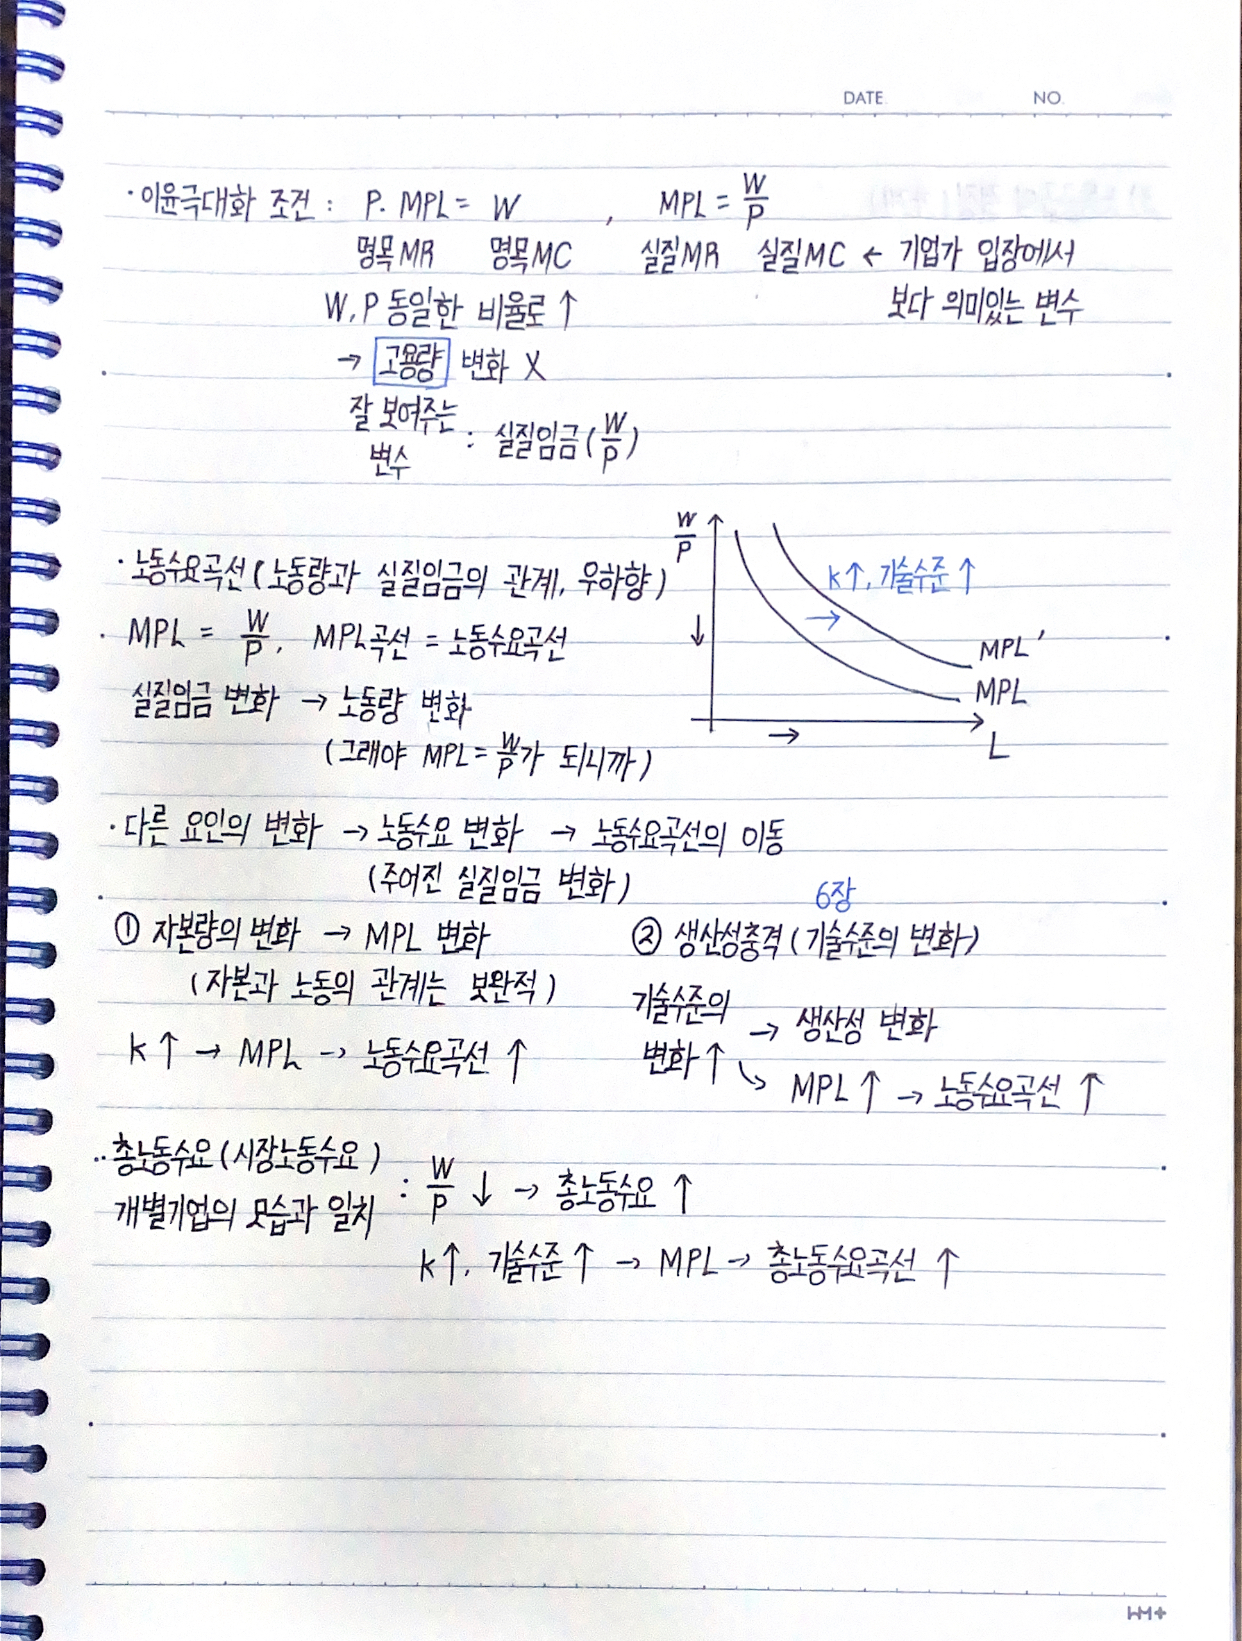 DATE. NO.
· 이윤극대화 조건 : P. MPL = W , MPL = W/P
명목MR 명목MC 실질MR 실질MC ← 기업가 입장에서
보다 의미있는 변수
W, P 동일한 비율로 ↑
→ 고용량 변화 X
잘 보여주는
변수 : 실질임금 (W/P)
· 노동수요곡선 (노동량과 실질임금의 관계, 우하향)
MPL = W/P, MPL곡선 = 노동수요곡선
실질임금 변화 → 노동량 변화
(그래야 MPL = W/P가 되니까)
W/P
↓
K↑, 기술수준 ↑
→
MPL'
MPL
→
L
· 다른 요인의 변화 → 노동수요 변화 → 노동수요곡선의 이동
(주어진 실질임금 변화)
① 자본량의 변화 → MPL 변화
(자본과 노동의 관계는 보완적)
K ↑ → MPL → 노동수요곡선 ↑
6장
② 생산성충격 (기술수준의 변화)
기술수준의
변화 ↑ → 생산성 변화
↘ MPL ↑ → 노동수요곡선 ↑
· 총노동수요 (시장노동수요)
개별기업의 모습과 일치 : W/P ↓ → 총노동수요 ↑
K↑, 기술수준 ↑ → MPL → 총노동수요곡선 ↑